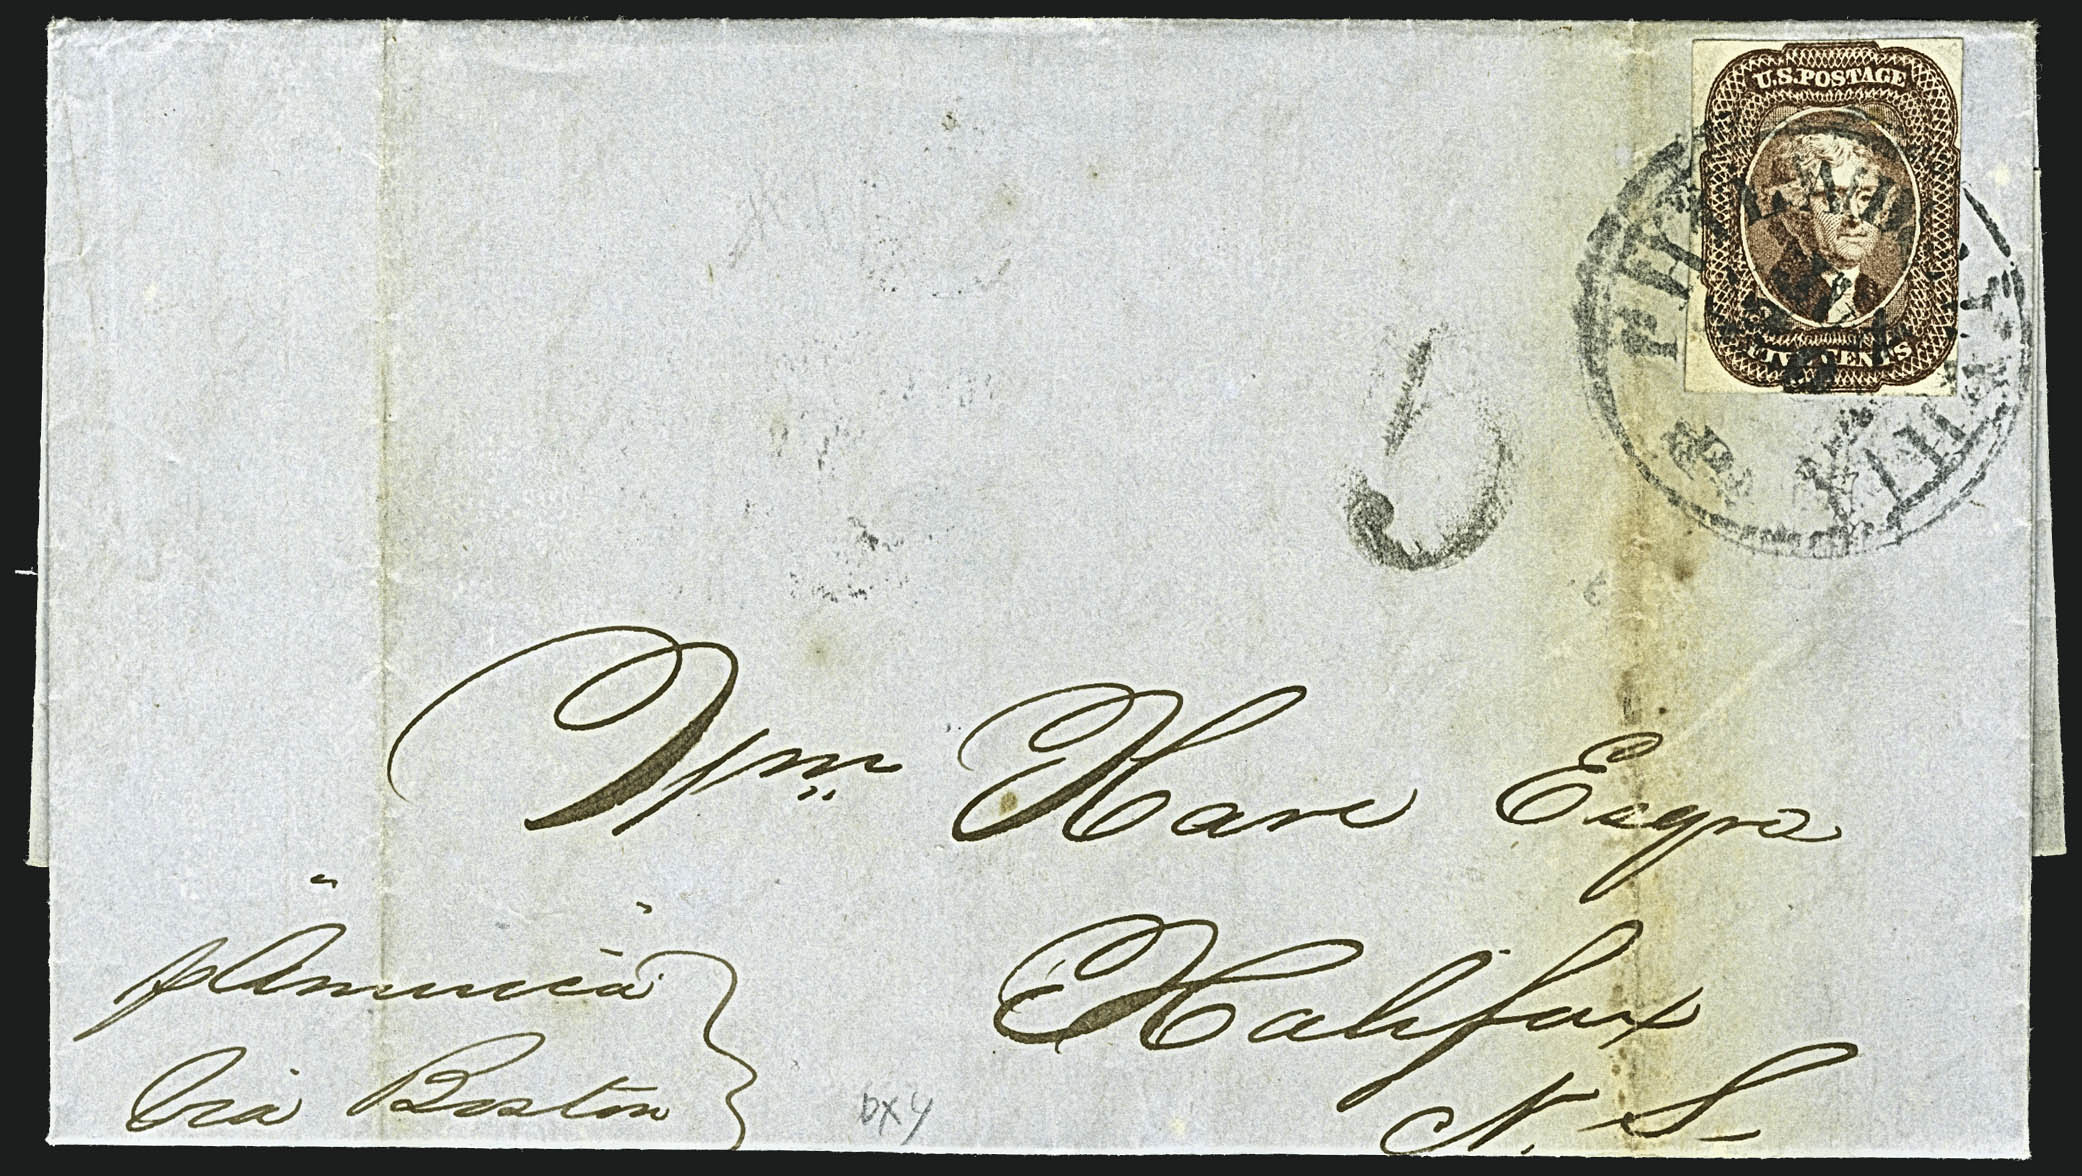 U.S. POSTAGE
FIVE CENTS
5
Wm Hare Esqre
Halifax
N. S.
p "America"
Via Boston